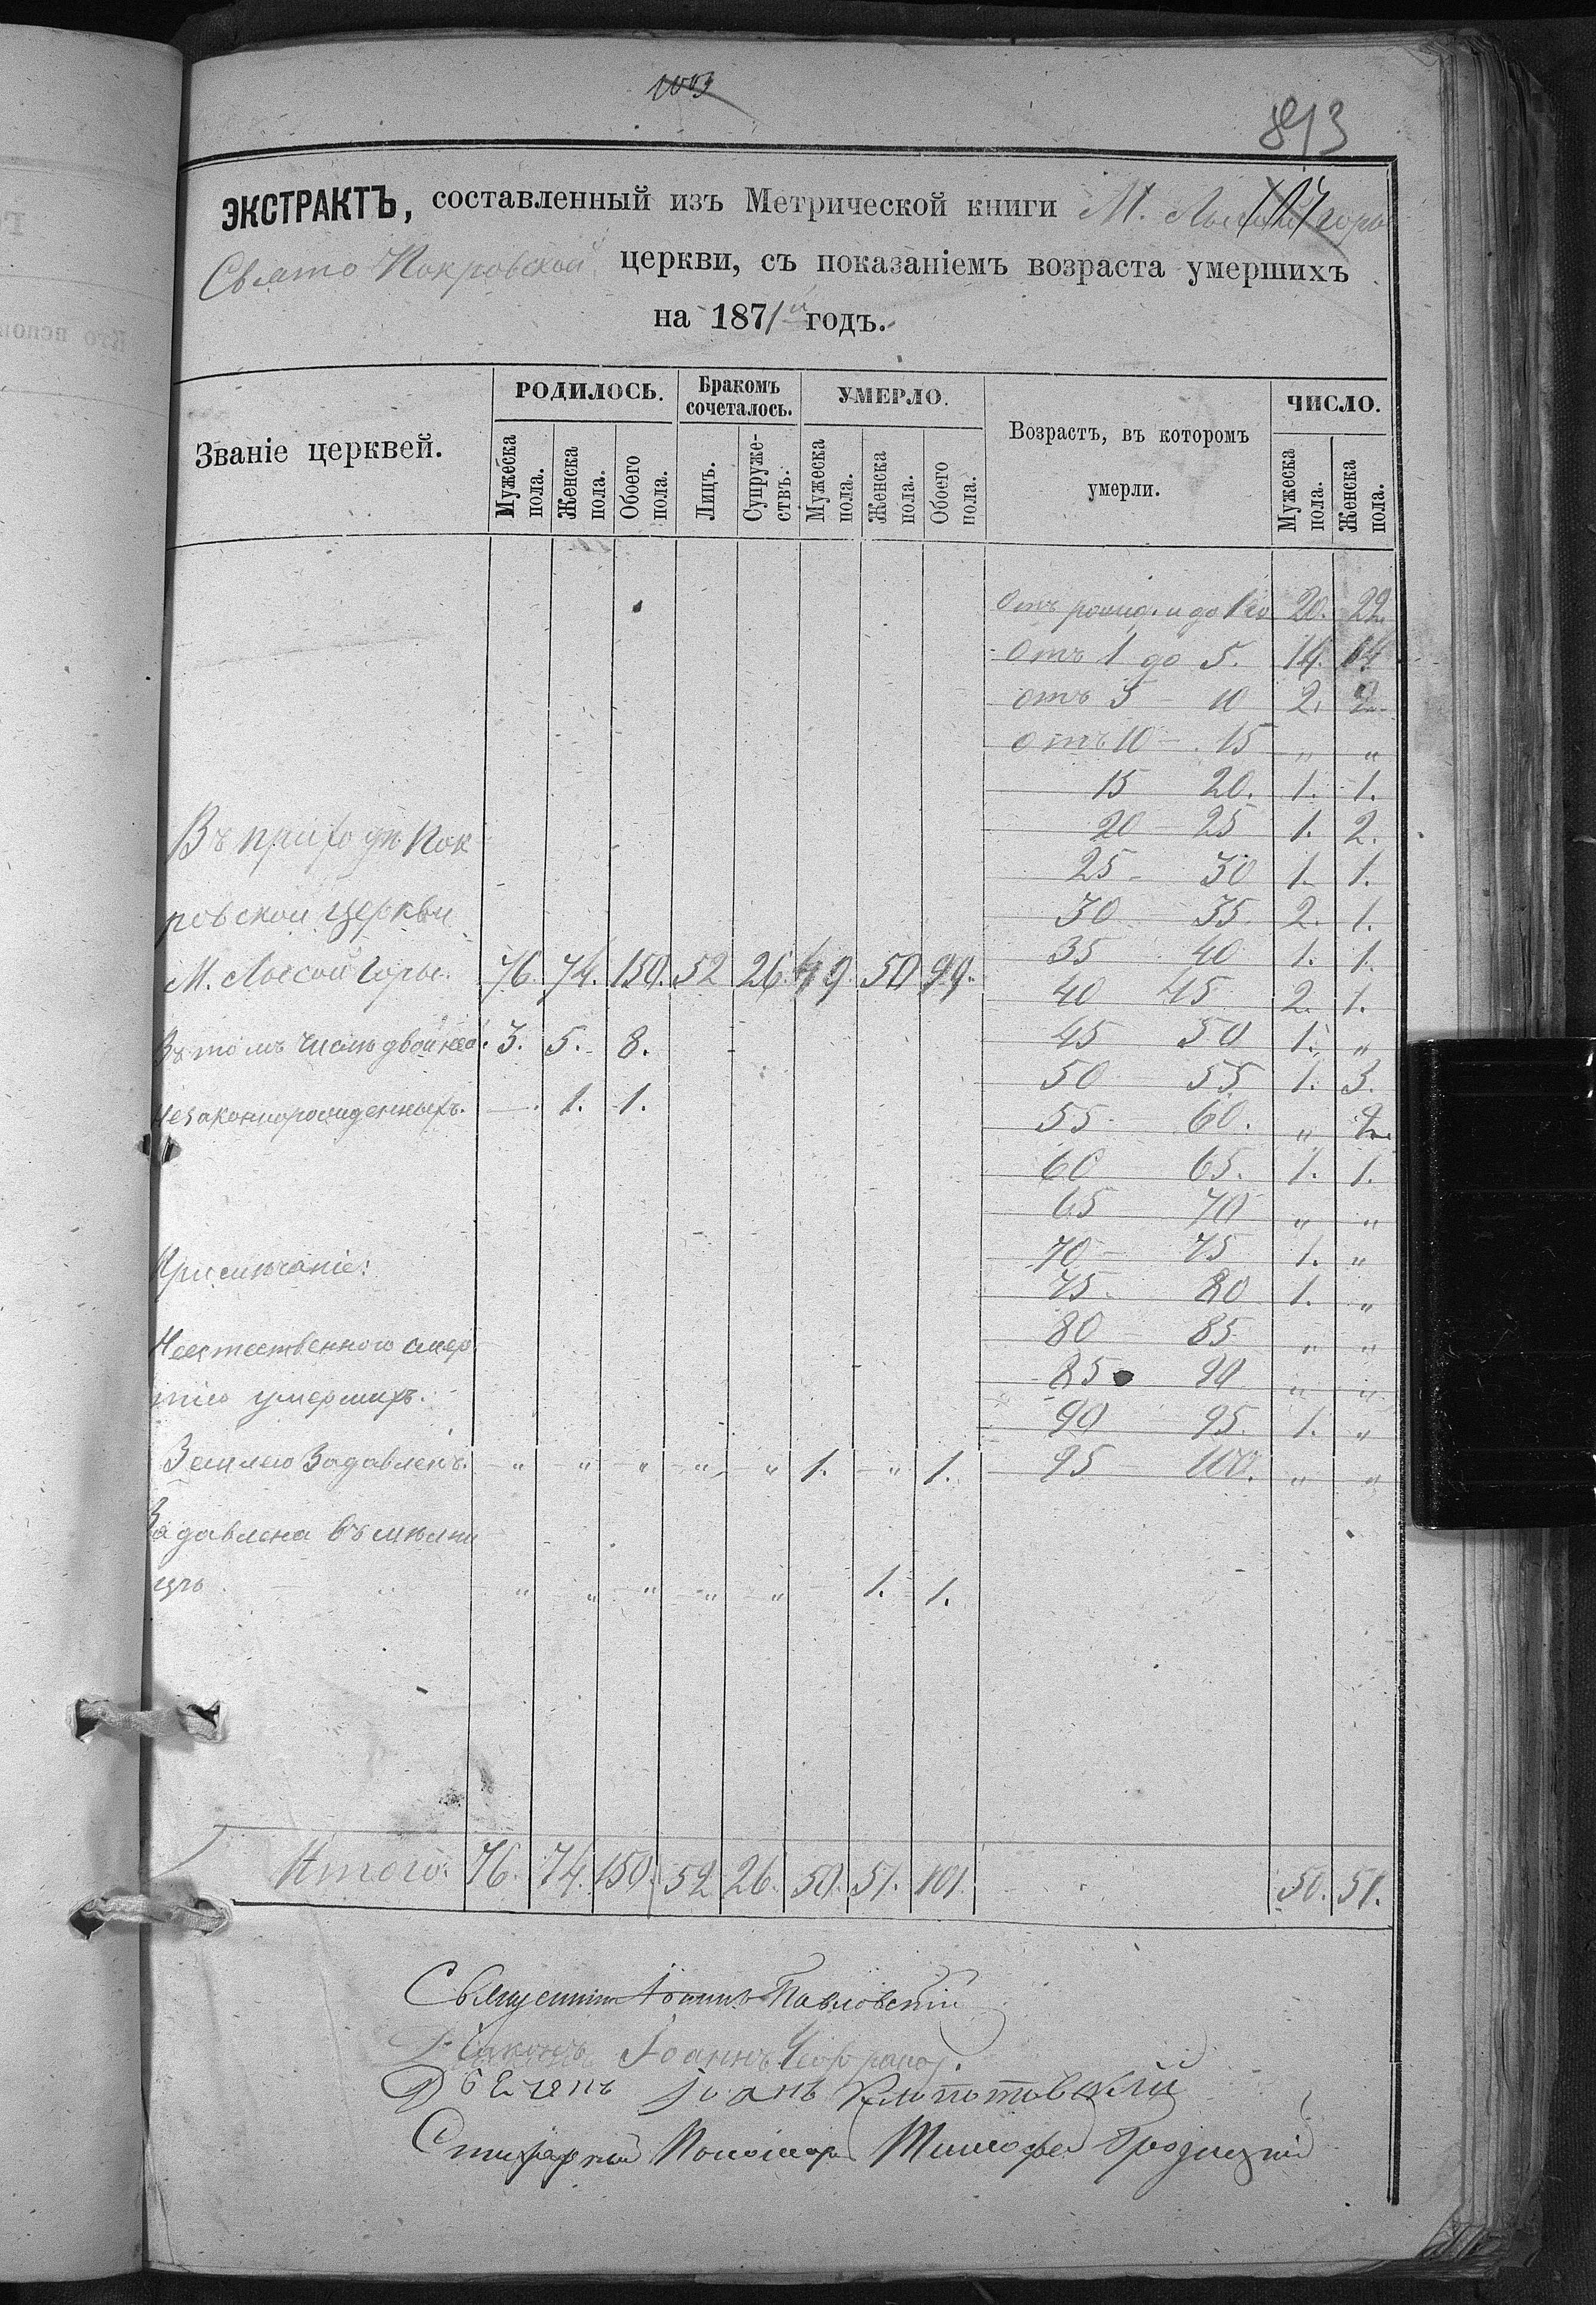 1003
893
ЭКСТРАКТЪ, составленный изъ Метрической книги М. Лысой горы
Свято Покровской церкви, съ показаніемъ возраста умершихъ
на 1871й годъ.
Званіе церквей.
РОДИЛОСЬ.
Мужеска пола.
Женска пола.
Обоего пола.
Бракомъ сочеталось.
Лицъ.
Супружествъ.
УМЕРЛО.
Мужеска пола.
Женска пола.
Обоего пола.
Возрастъ, въ которомъ умерли.
ЧИСЛО.
Мужеска пола.
Женска пола.
Отъ рожд. и до 1го 20. 22.
Отъ 1 до 5. 14. 14
отъ 5 - 10 2. 2.
отъ 10 - 15 " "
15 20. 1. 1.
20 - 25 1. 2.
25 - 30 1. 1.
30 - 35. 2. 1.
35 40 1. 1.
40 45 2. 1.
45 50 1. "
50 55 1. 3.
55 60. " 2.
60 65. 1. 1.
65 70 " "
70 - 75 1. "
75 - 80 1. "
80 85 " "
85 90 " "
90 95. 1. "
95 100. " "
Въ приходѣ Пок
ровской церкви
М. Лысой Горы. 76. 74. 150. 52 26. 49. 50 99.
Въ томъ числѣ двойней: 3. 5. 8.
Незаконнорожденныхъ. — 1. 1.
Примѣчаніе:
Неестественною смер
тію умершихъ.
Землею Задавленъ. " " " " " 1. " 1.
Задавлена въ мѣльни
цѣ " " " " " 1. 1.
Итого: 76. 74. 150. 52 26. 50. 51. 101. 50. 51.
Священникъ Павловскій
Діаконъ Іоаннъ
Іоанъ Клопотовскій
Стихарный Пономарь Тимофей